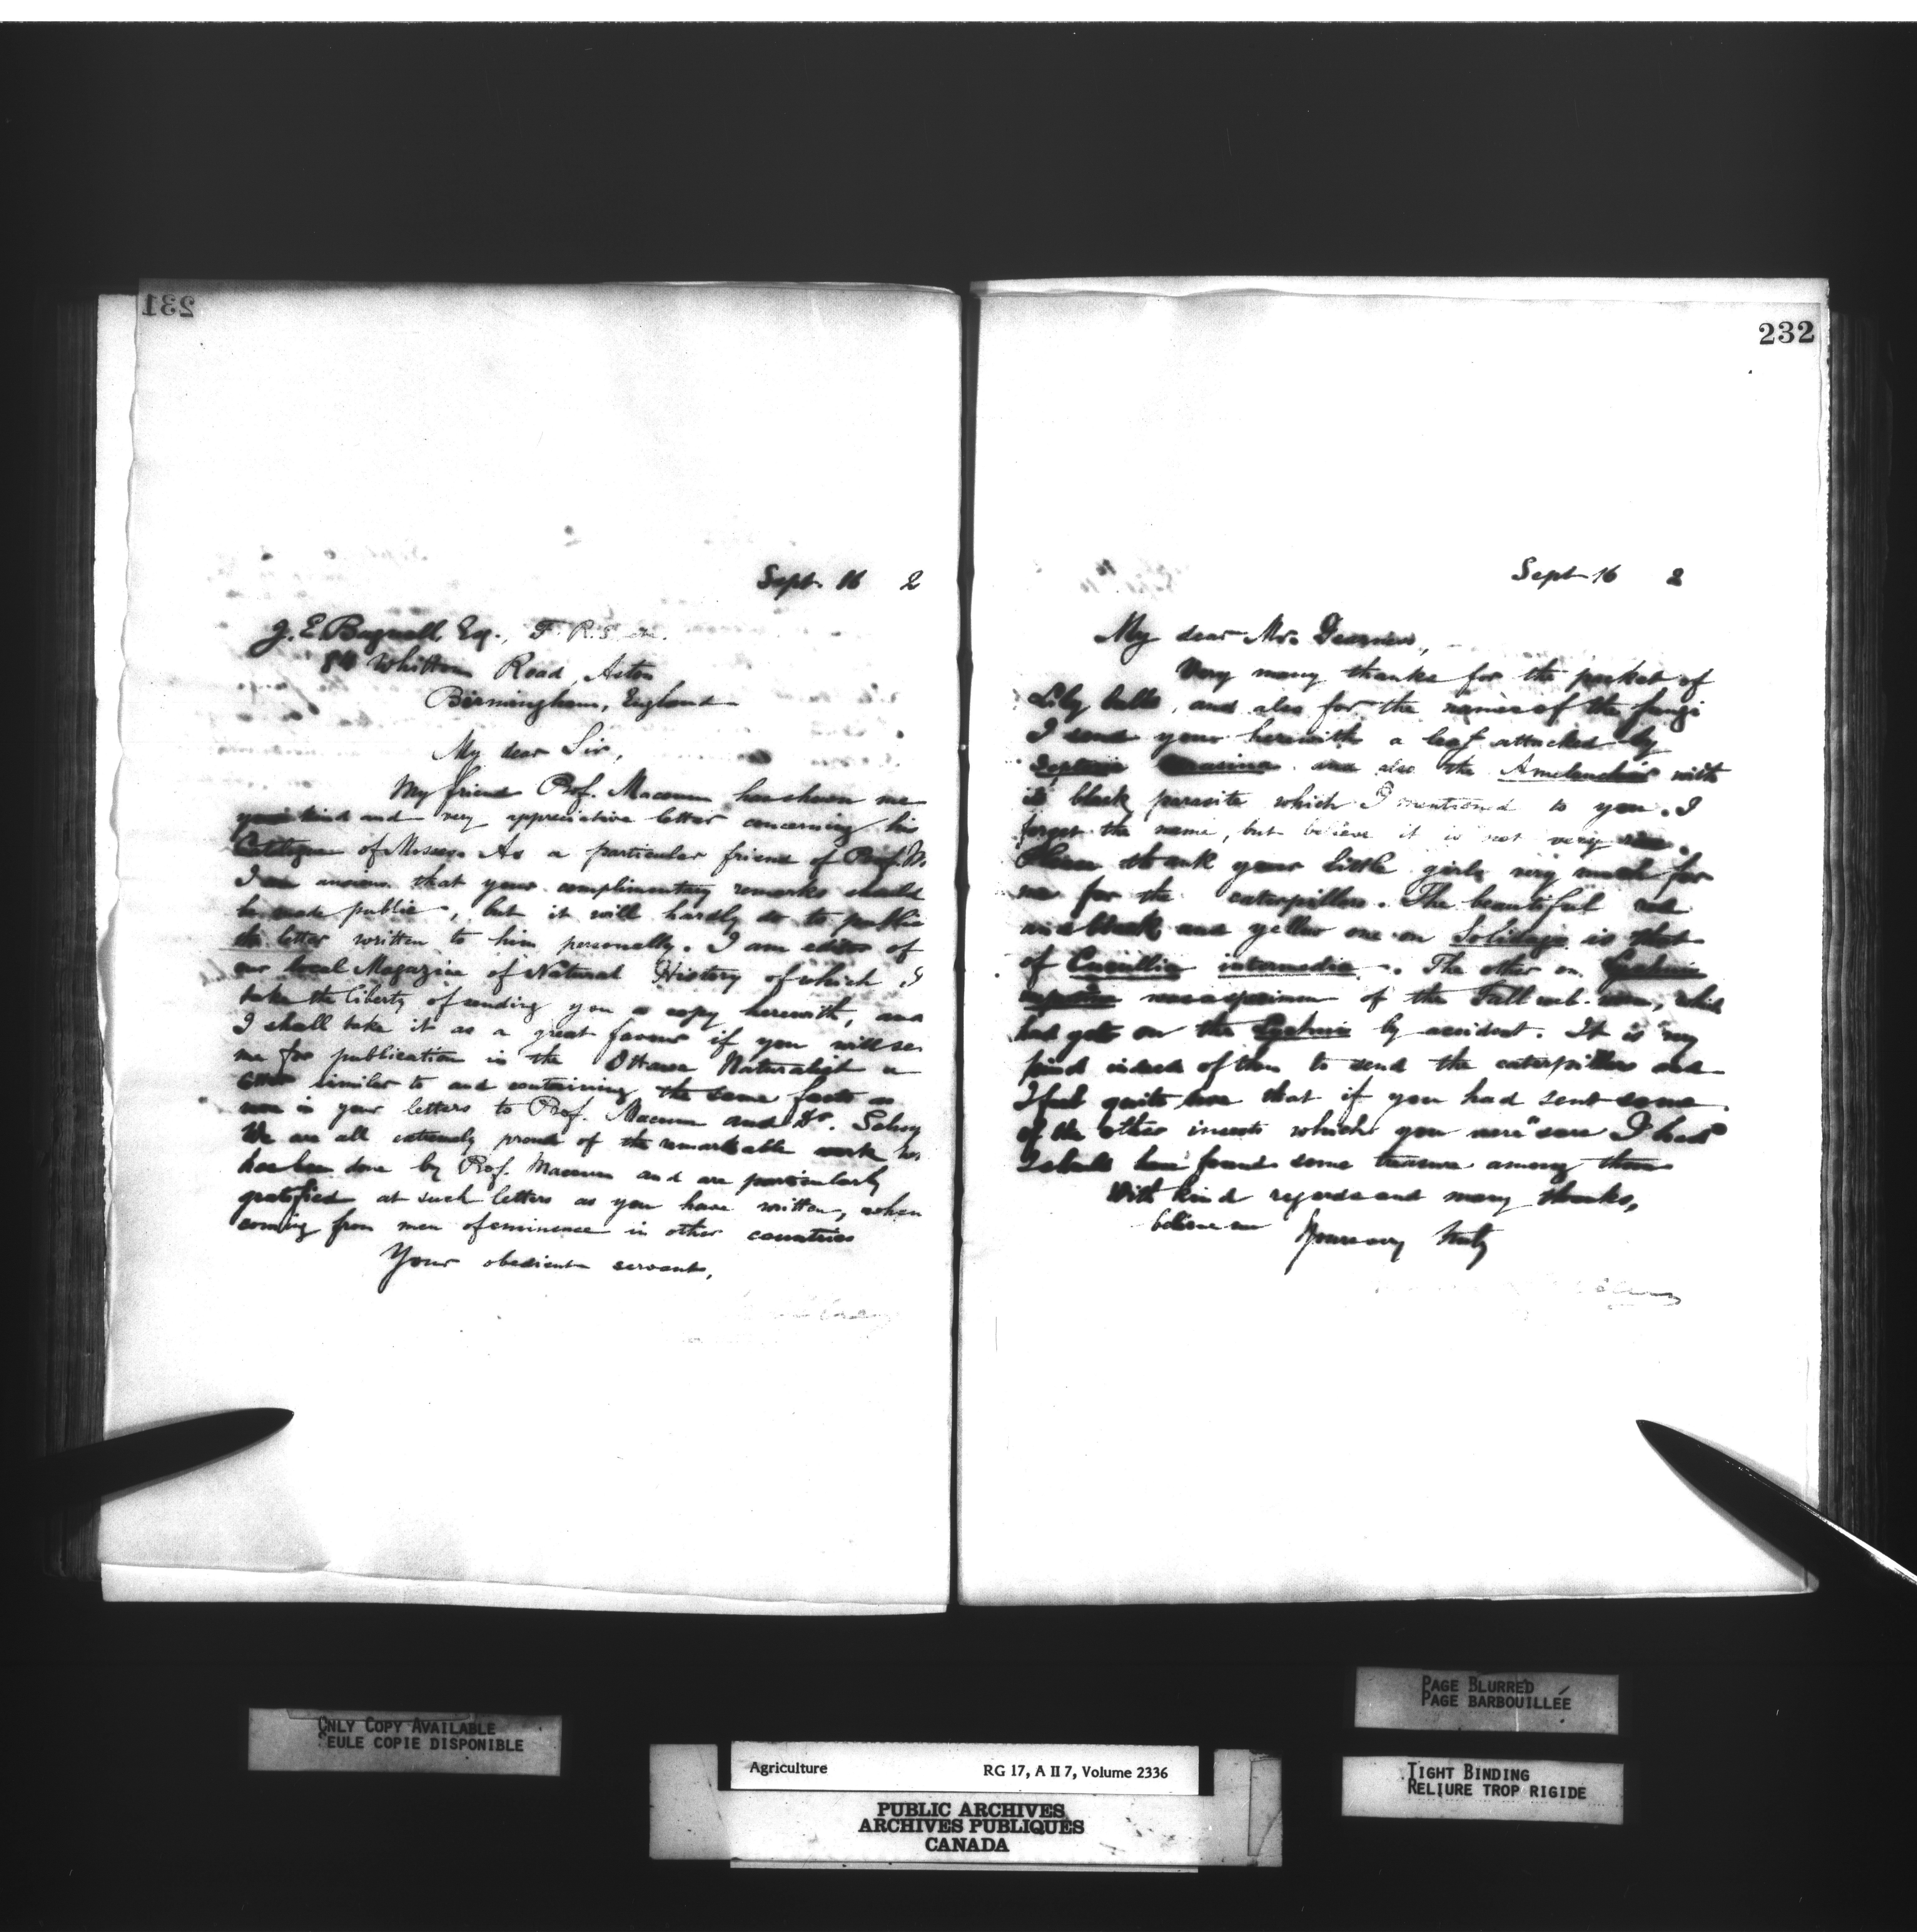 231
Sept. 16 2
J. E. Bagnall, Esq., F. R. S.
84 Whitton Road, Aston
Birmingham, England
My dear Sir,
My friend Prof. Macoun has shown me
your kind and very appreciative letter concerning his
Catalogue of Mosses. As a particular friend of Prof. M.
I am anxious that your complimentary remarks should
be made public, but it will hardly do to publish
letter written to him personally. I am editor of
our local Magazine of Natural History of which I
take the liberty of sending you a copy herewith, and
I shall take it as a great favour if you will se
me for publication in the Ottawa Naturalist a
similar to and containing the same facts as
in your letters to Prof. Macoun and Dr.
We are all extremely proud of the remarkable work
has been done by Prof. Macoun and are particularly
gratified at such letters as you have written, when
coming from men of eminence in other countries
Your obedient servant,
232
Sept 16 2
My dear Mr.
Very many thanks for the packet of
Lily bulbs, and also for the names of the fungi
I send your herewith a leaf attacked by
and also the Amelanchier with
its black parasite which I mentioned to you. I
forget the name, but believe it is not very
Please thank your little girls very much for
me for the caterpillars. The beautiful red
black and yellow one on Solidago is that
of Cucullia intermedia. The other on
was a specimen of the Fall web-worm, which
had got on the by accident. It is very
kind indeed of them to send the caterpillars and
I feel quite sure that if you had sent some
of the other insects which you were "sure I had"
I should have found some treasure among them
With kind regards and many thanks,
believe me Yours very truly
ONLY COPY AVAILABLE
SEULE COPIE DISPONIBLE
PAGE BLURRED
PAGE BARBOUILLÉE
TIGHT BINDING
RELIURE TROP RIGIDE
Agriculture RG 17, A II 7, Volume 2336
PUBLIC ARCHIVES
ARCHIVES PUBLIQUES
CANADA